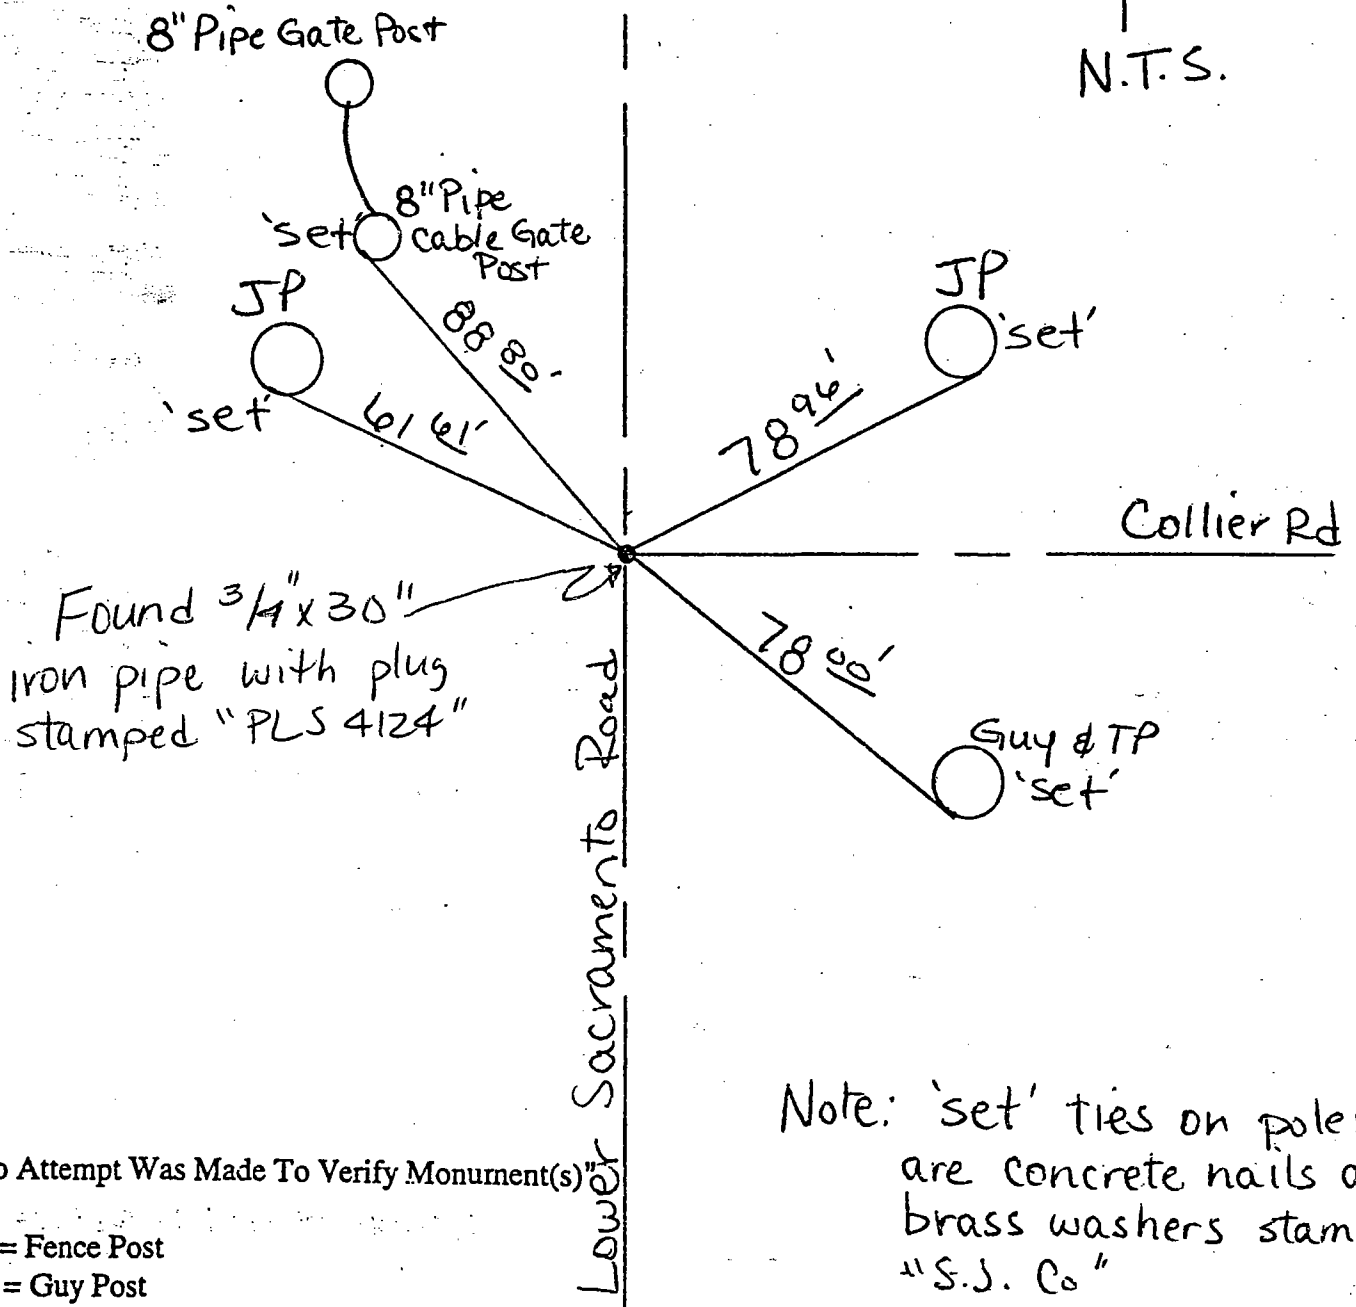 8" Pipe Gate Post
N.T.S.
8" Pipe
'set' Cable Gate
Post
JP
'set'
88 80'
61 61'
JP
'set'
78 96'
Collier Rd
Found 3/4" x 30"
Iron pipe with plug
stamped "PLS 4124"
78 00'
Guy & TP
'set'
Lower Sacramento Road
Note: 'set' ties on pole
are concrete nails
brass washers stam
"S.J. Co"
Attempt Was Made To Verify Monument(s)"
= Fence Post
= Guy Post